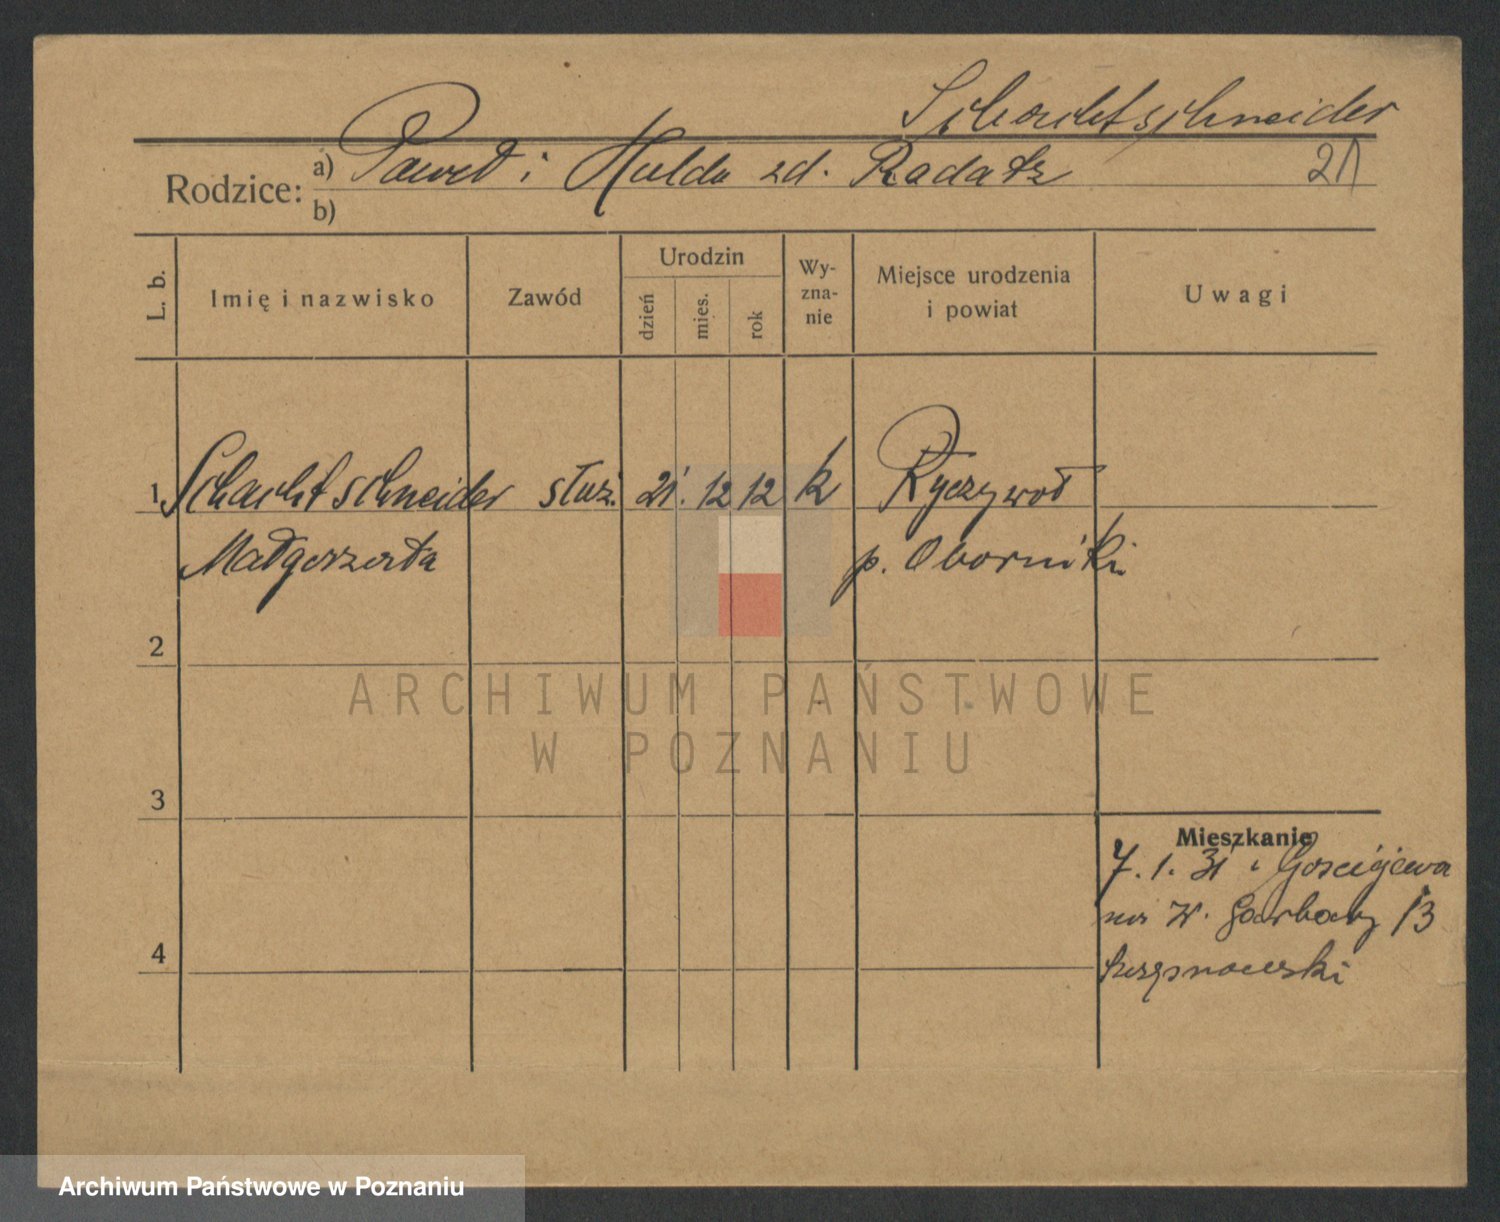 Schachtschneider
Rodzice: a) Paweł i Hulda zd. Radatz 21
b)
L. b. Imię i nazwisko Zawód Urodzin dzień mies. rok Wy-zna-nie Miejsce urodzenia i powiat Uwagi
1 Schachtschneider służ. 21. 12 12 k Ryczywół
Małgorzata p. Oborniki
2
ARCHIWUM PAŃSTWOWE
W POZNANIU
3
Mieszkanie
7. 1. 31 z Gościejewa
na W. Garbary 13
4
Archiwum Państwowe w Poznaniu